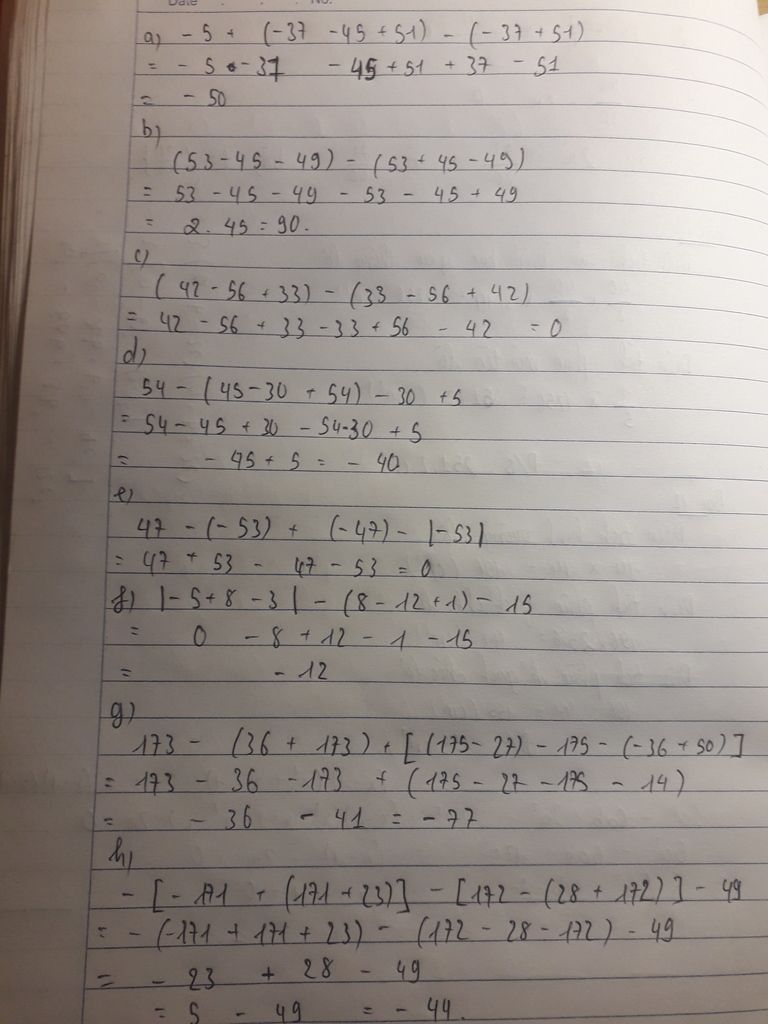 Date No.
a) - 5 + (-37 -45 + 51) - (-37 + 51)
= - 5 - 37 - 45 + 51 + 37 - 51
= - 50
b)
(53 - 45 - 49) - (53 + 45 - 49)
= 53 - 45 - 49 - 53 - 45 + 49
= 2. 45 = 90.
c)
( 42 - 56 + 33) - (33 - 56 + 42)
= 42 - 56 + 33 - 33 + 56 - 42 = 0
d)
54 - (45 - 30 + 54) - 30 + 5
= 54 - 45 + 30 - 54 - 30 + 5
= - 45 + 5 = - 40
e)
47 - (- 53) + (-47) - |-53|
= 47 + 53 - 47 - 53 = 0
f) |- 5 + 8 - 3| - (8 - 12 + 1) - 15
= 0 - 8 + 12 - 1 - 15
= - 12
g)
173 - (36 + 173) + [(175 - 27) - 175 - (-36 + 50)]
= 173 - 36 - 173 + (175 - 27 - 175 - 14)
= - 36 - 41 = - 77
h)
- [- 171 + (171 + 23)] - [172 - (28 + 172)] - 49
= - (-171 + 171 + 23) - (172 - 28 - 172) - 49
= - 23 + 28 - 49
= 5 - 49 = - 44.